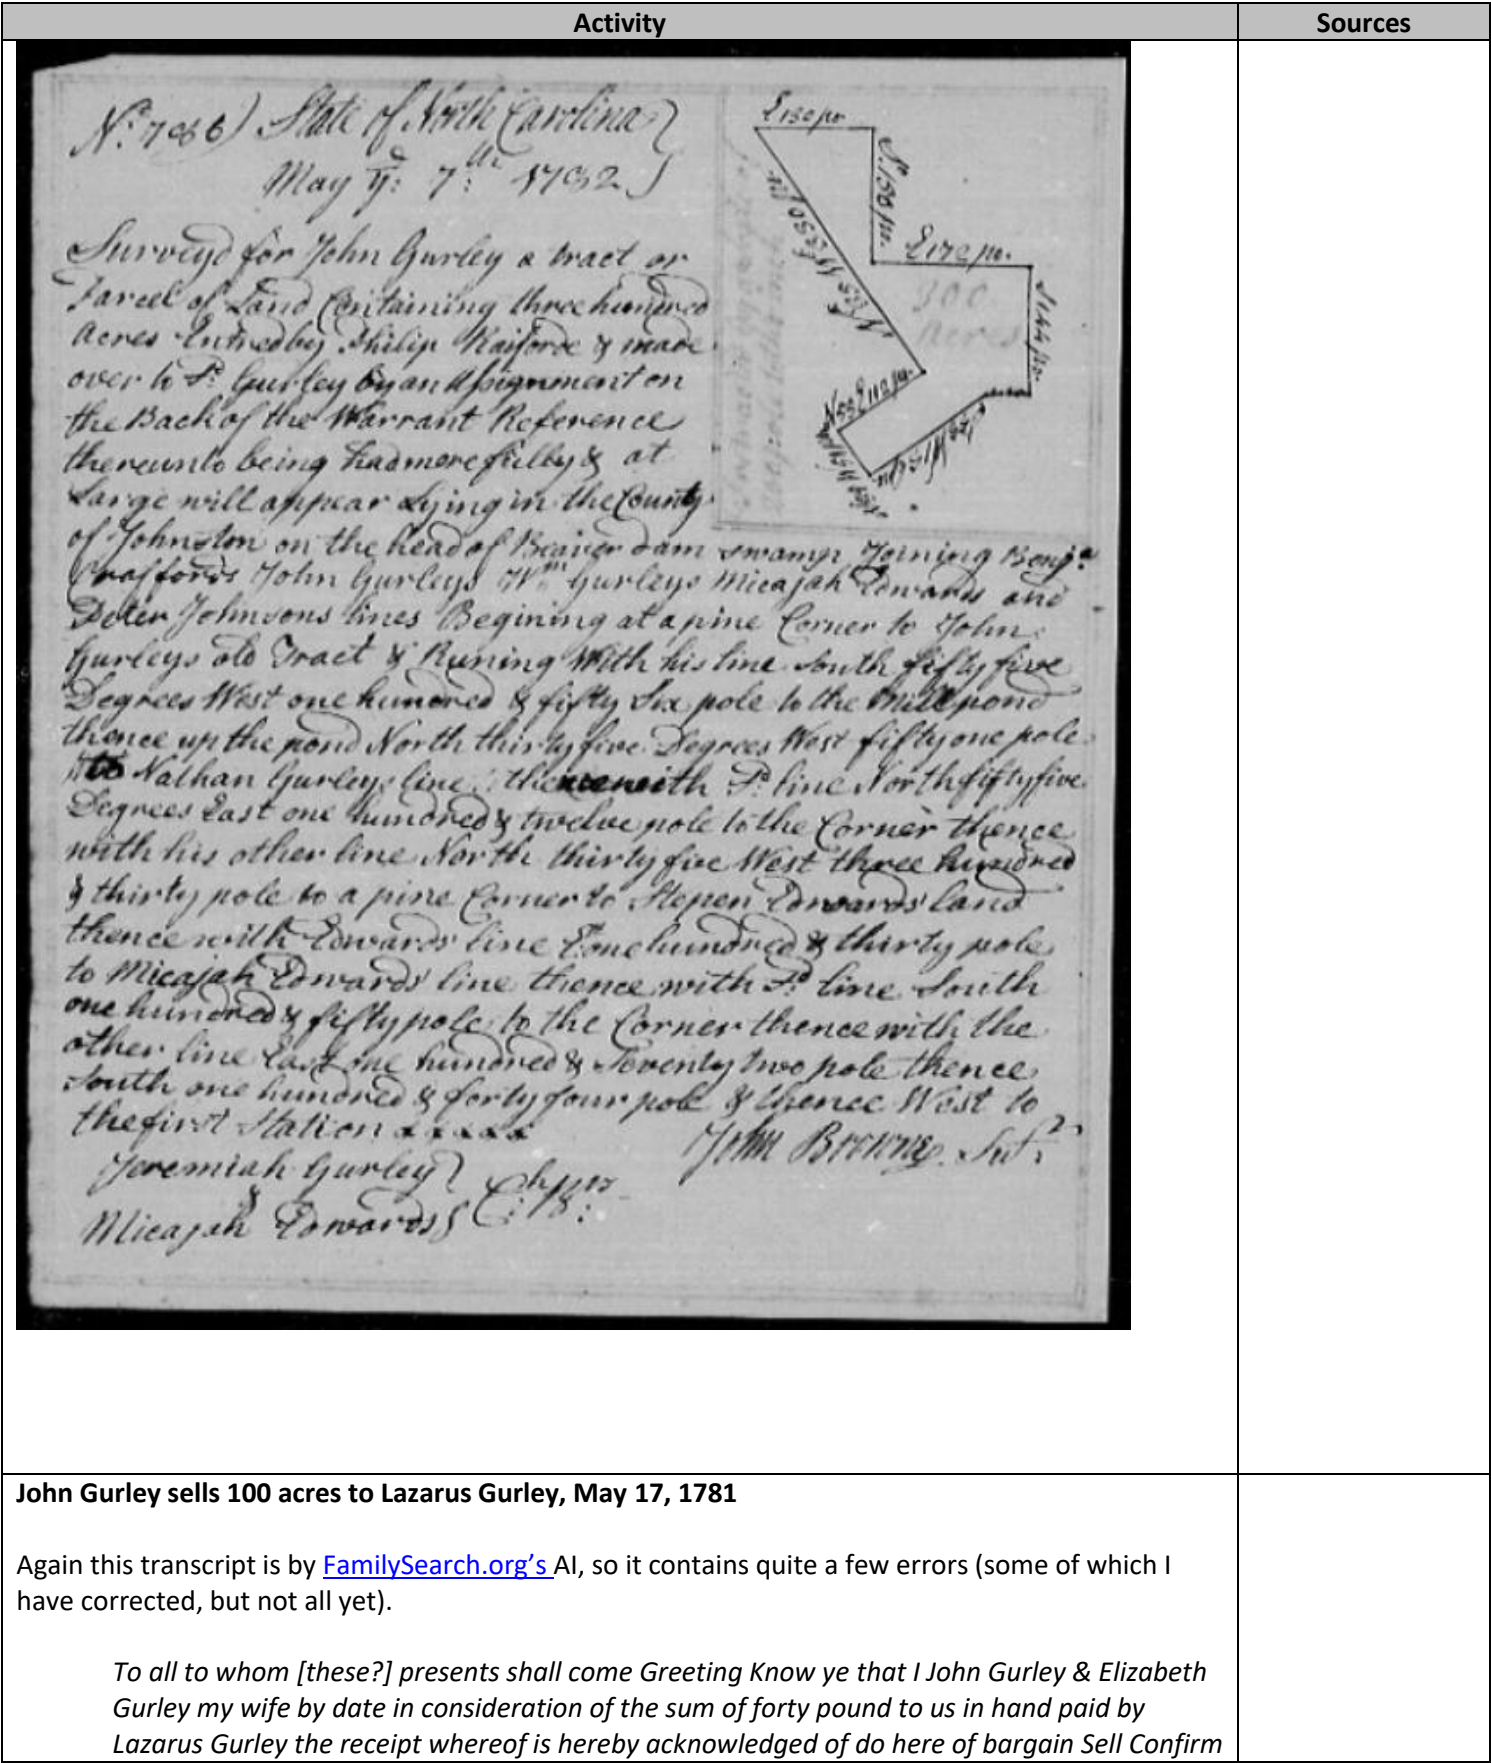 Activity
Sources
State of North Carolina
May ye: 7:th 1782
E 130 po
S. 150 po.
E 172 po.
S 144 po.
300
Acres
Survey'd for John Gurley a tract or
Parcel of Land Containing three hundred
Acres Entred by Philip Raiford & made
over to Sd. Gurley by an Assignment on
the Back of the Warrant Reference
thereunto being had more fully & at
Large will appear Lying in the County
of Johnston on the head of Beaver dam swamp Joining Benja
Craffords John Gurleys Wm Gurleys Micajah Edwards and
Peter Johnsons lines Begining at a pine Corner to John
Gurleys old Tract & Runing With his line South fifty five
Degrees West one hundred & fifty Six pole to the Mill pond
thence up the pond North thirty five Degrees West fifty one pole
to Nathan Gurleys line thence with Sd. line North fifty five
Degrees East one hundred & twelve pole to the Corner thence
with his other line North thirty five West three hundred
& thirty pole to a pine Corner to Stepen Edwards' land
thence with Edwards' line E one hundred & thirty pole
to Micajah Edwards' line thence with Sd. line South
one hundred & fifty pole to the Corner thence with the
other line East one hundred & Seventy two pole thence
South one hundred & forty four pole & thence West to
the first Station x x x x x
John Browne Surr.
Jeremiah Gurley
&
Micajah Edwards
John Gurley sells 100 acres to Lazarus Gurley, May 17, 1781
Again this transcript is by FamilySearch.org’s AI, so it contains quite a few errors (some of which I
have corrected, but not all yet).
To all to whom [these?] presents shall come Greeting Know ye that I John Gurley & Elizabeth
Gurley my wife by date in consideration of the sum of forty pound to us in hand paid by
Lazarus Gurley the receipt whereof is hereby acknowledged of do here of bargain Sell Confirm